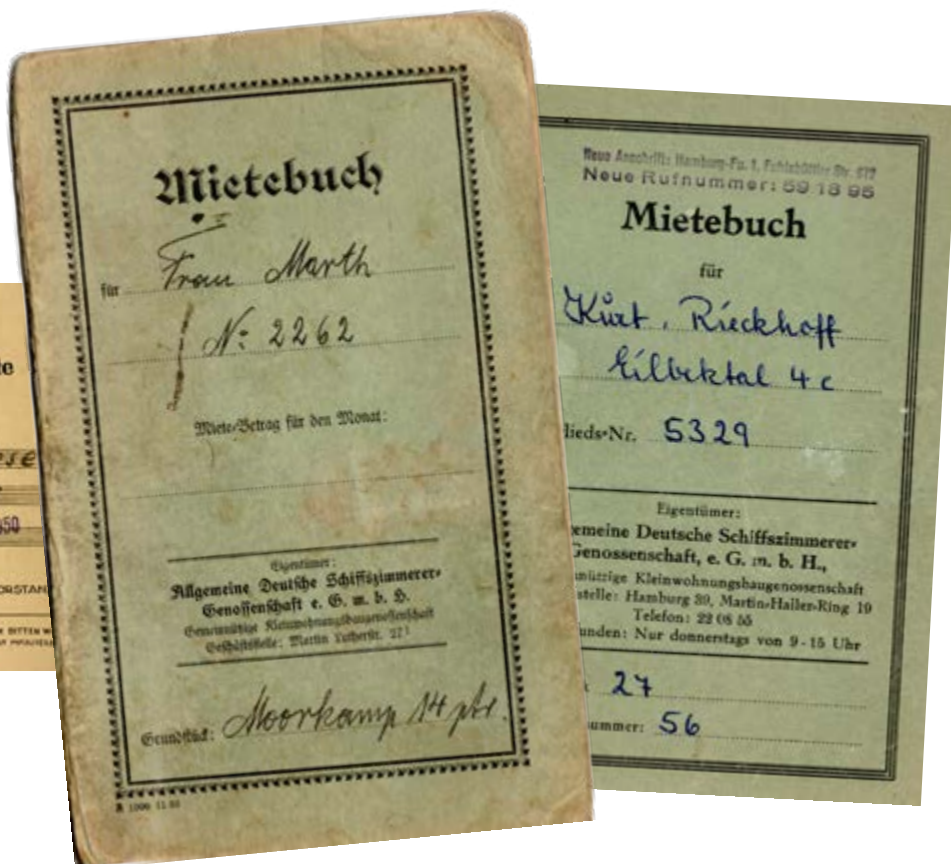 Mietebuch
für Frau Marth
No 2262
Miete-Betrag für den Monat:
Eigentümer:
Allgemeine Deutsche Schiffszimmerer-
Genossenschaft e. G. m. b. H.
Gemeinnützige Kleinwohnungsbaugenossenschaft
Geschäftsstelle: Martin Lutherstr.
Grundstück: Moorkamp 14 ptr.
Neue Anschrift: Hamburg-Fu. 1, Fuhlsbüttler Str.
Neue Rufnummer: 59 18 95
Mietebuch
für
Kurt Rieckhoff
Eilbektal 4 c
lieds-Nr. 5329
Eigentümer:
emeine Deutsche Schiffszimmerer-
Genossenschaft, e. G. m. b. H.,
nützige Kleinwohnungsbaugenossenschaft
stelle: Hamburg 39, Martin-Haller-Ring 19
Telefon: 22 08 55
unden: Nur donnerstags von 9-15 Uhr
27
ummer: 56
te
ese
950
ORSTAN
E BITTEN W